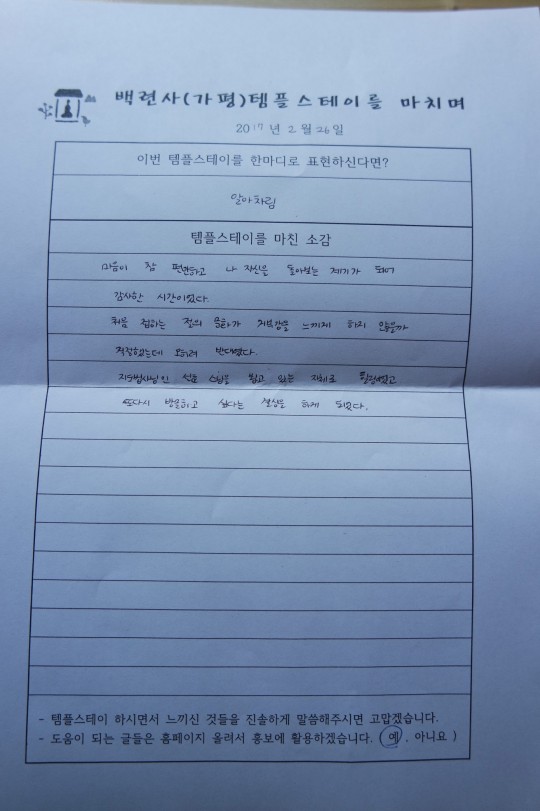 백련사(가평)템플스테이를 마치며
2017년 2월 26일
이번 템플스테이를 한마디로 표현하신다면?
알아차림
템플스테이를 마친 소감
마음이 참 편안하고 나 자신을 돌아보는 계기가 되어
감사한 시간이었다.
처음 접하는 절의 문화가 거부감을 느끼게 하지 않을까
걱정했는데 오히려 반대였다.
지도법사님인 스님을 뵙고 있는 자체로 힐링이었고
또다시 방문하고 싶다는 생각을 하게 되었다.
- 템플스테이 하시면서 느끼신 것들을 진솔하게 말씀해주시면 고맙겠습니다.
- 도움이 되는 글들은 홈페이지 올려서 홍보에 활용하겠습니다. ( 예 , 아니요 )